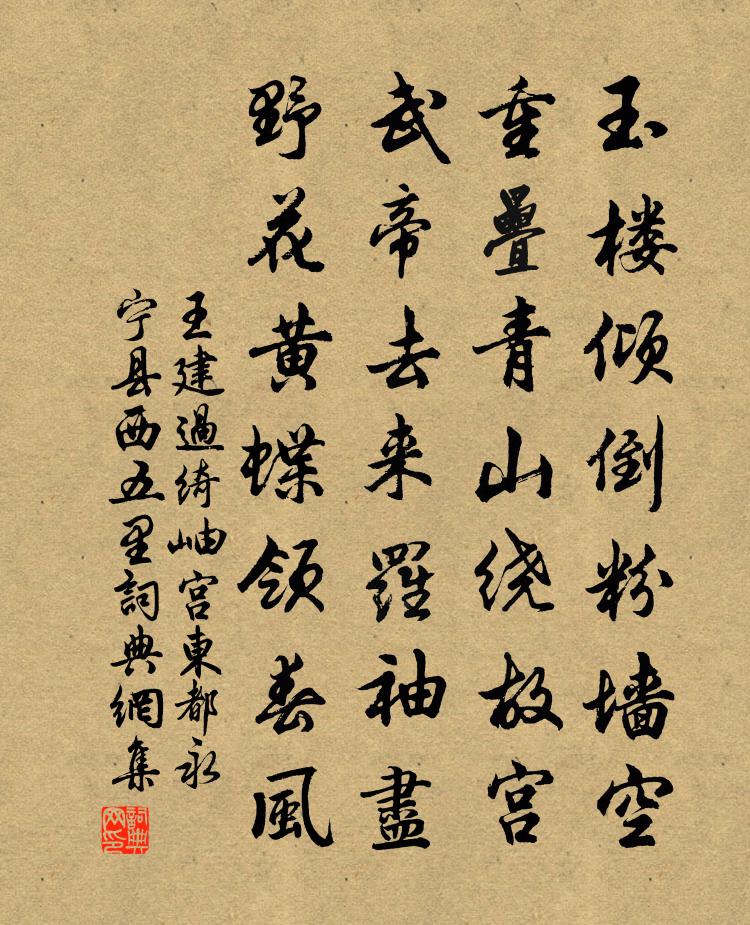 玉楼倾倒粉墙空
重疊青山绕故宫
武帝去来羅袖盡
野花黄蝶领春風
王建過绮岫宫東都永
宁县西五里詞典網集
詞典
网印